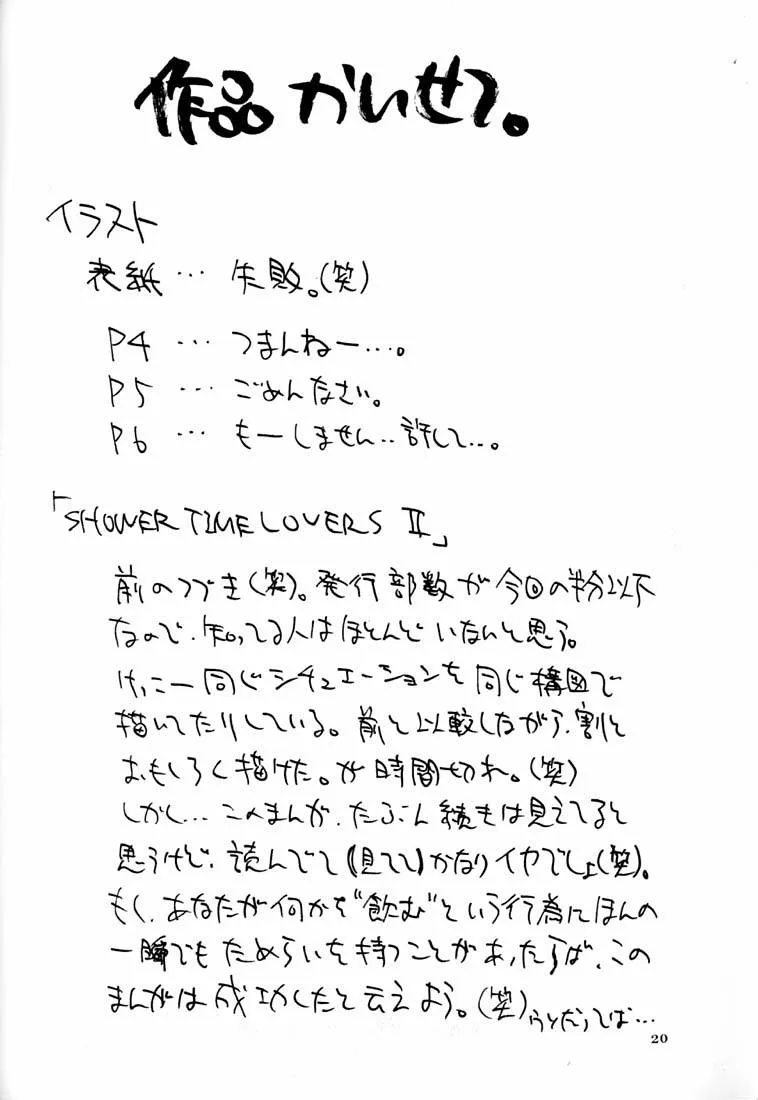 作品かいせつ。
イラスト
表紙… 失敗。(笑)
P4 … つまんねー…。
P5 … ごめんなさい。
P6 … もーしません‥許して…。
「SHOWER TIME LOVERS Ⅱ」
前のつづき(笑)。発行部数が今回の半分以下
なので、知ってる人はほとんどいないと思う。
けっこー同じシチュエーションを同じ構図で
描いてたりしている。前と比較しながら、割と
おもしろく描けた。が時間切れ。(笑)
しかし…このまんが、たぶん続きは見えてると
思うけど、読んでて(見てて)かなりイヤでしょ(笑)。
もし、あなたが何かを"飲む"という行為にほんの
一瞬でもためらいを持つことがあったらば、この
まんがは成功したと云えよう。(笑)うそだってば…
20